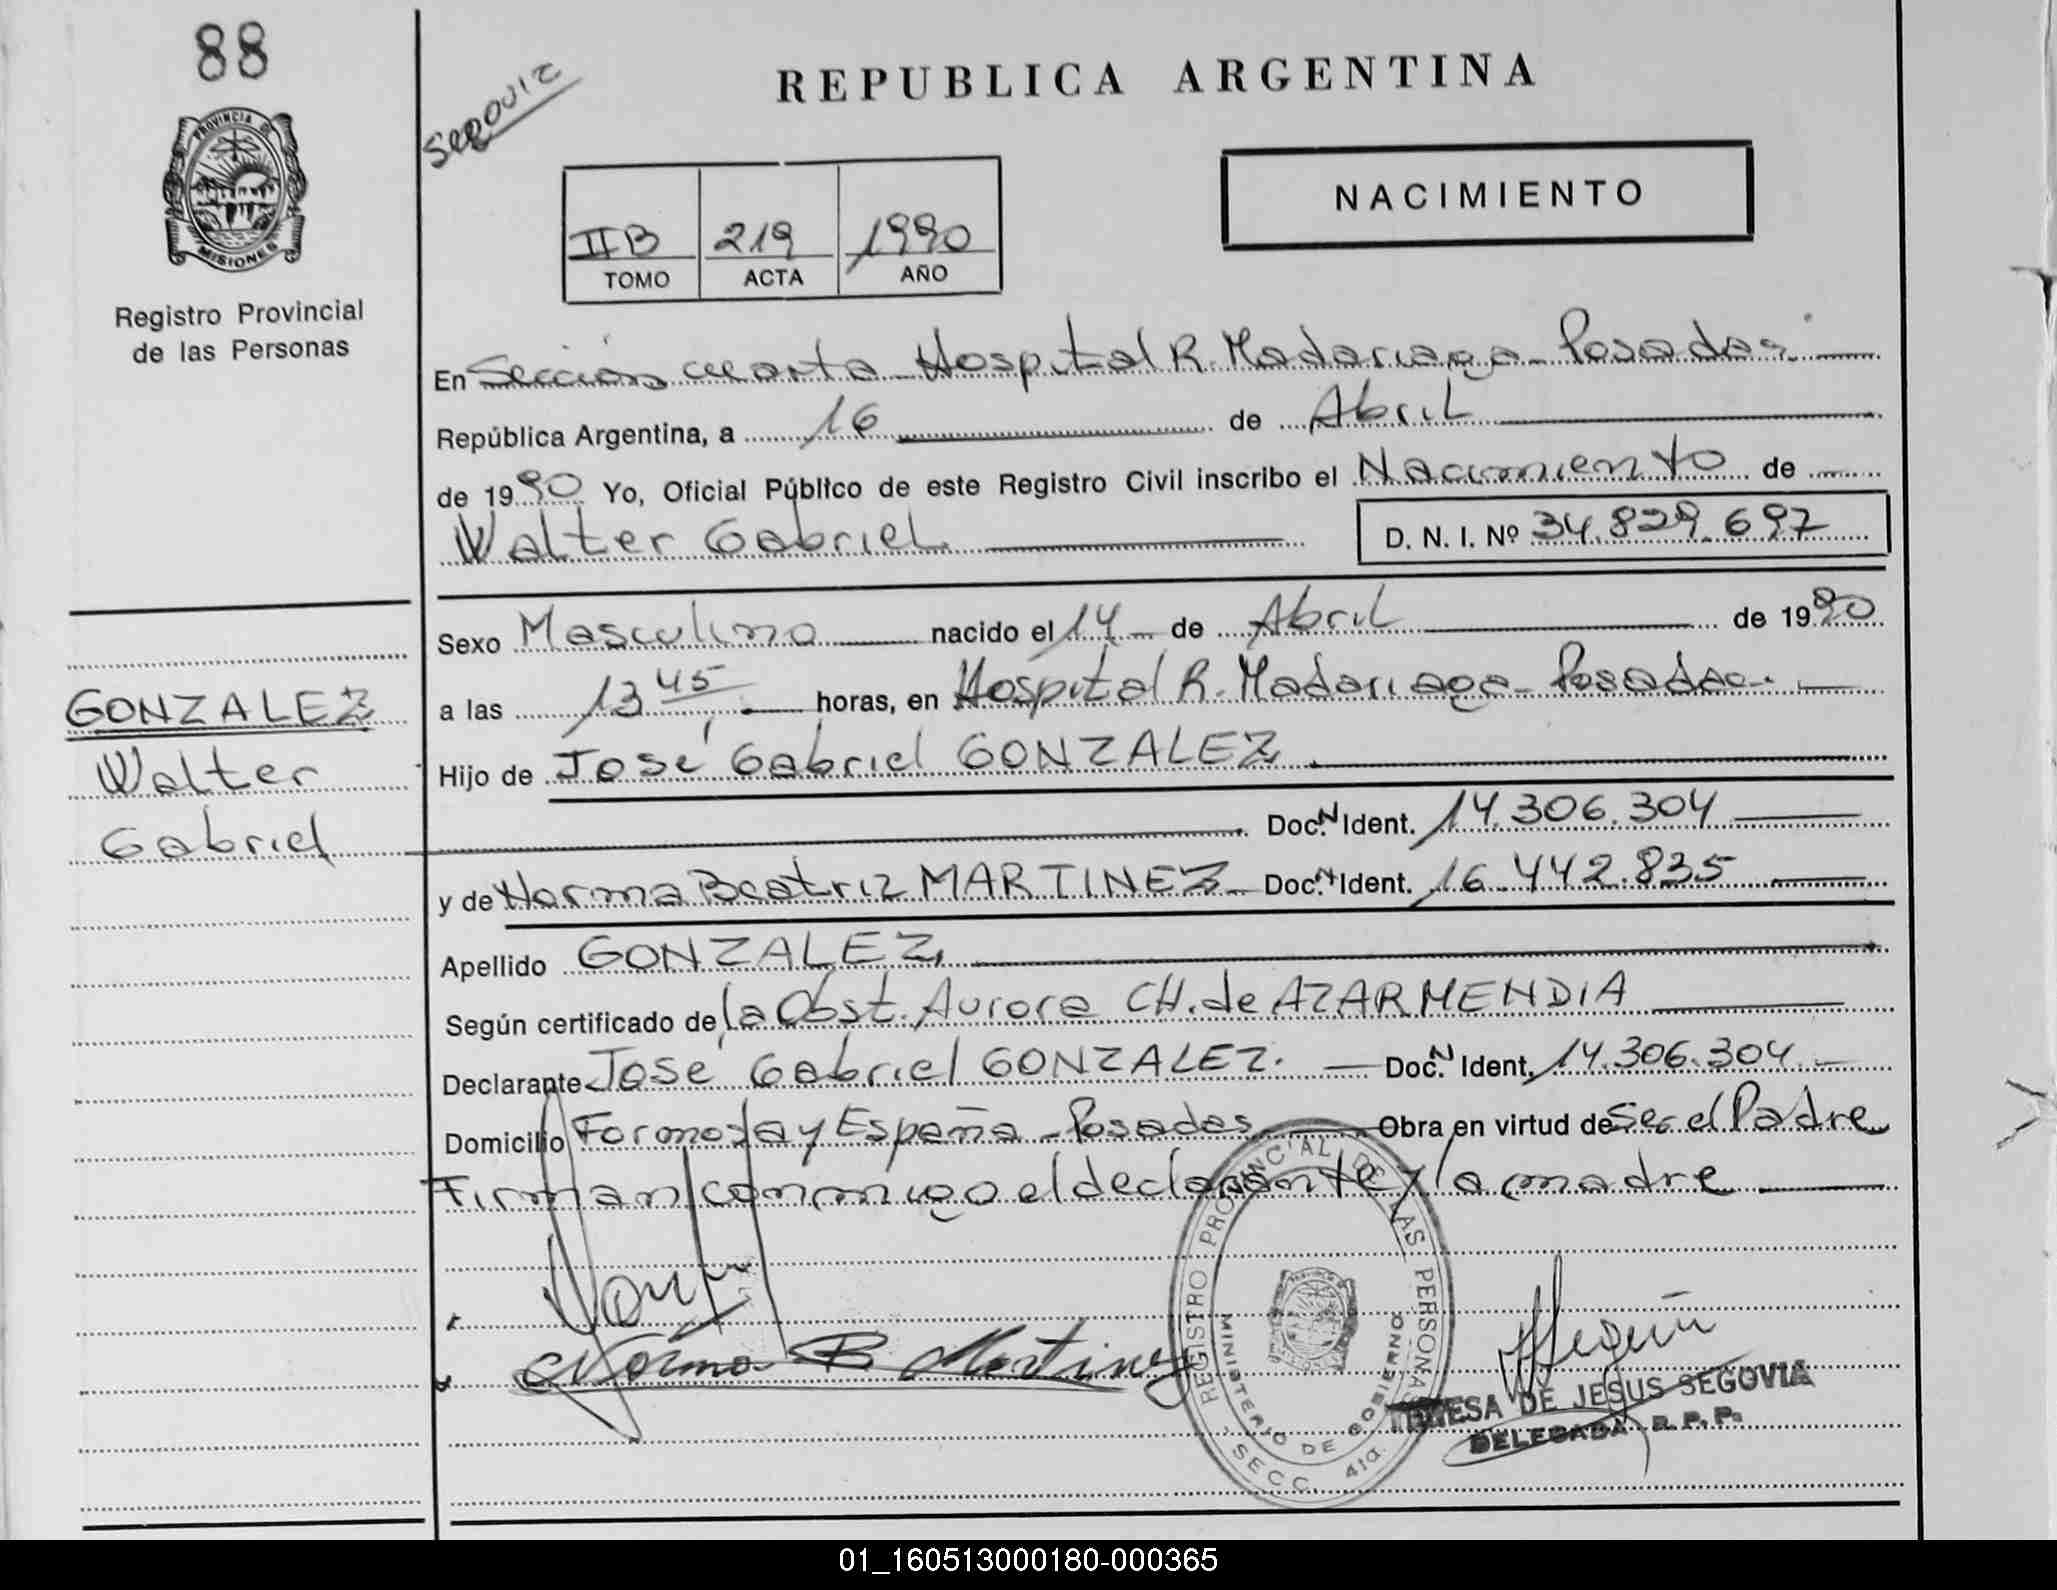 88
Segovia
REPUBLICA ARGENTINA
PROVINCIA DE
MISIONES
Registro Provincial
de las Personas
NACIMIENTO
IIB 219 1990
TOMO ACTA AÑO
En Sección cuarta Hospital R. Madariaga - Posadas
República Argentina, a 16 de Abril
de 1990 Yo, Oficial Público de este Registro Civil inscribo el Nacimiento de
Walter Gabriel D. N. I. Nº 34.829.697
Sexo Masculino nacido el 14 de Abril de 1990
a las 13 45 horas, en Hospital R. Madariaga - Posadas.
Hijo de José Gabriel GONZALEZ
Doc. N Ident. 14.306.304
y de Norma Beatriz MARTINEZ Doc. N Ident. 16.442.835
Apellido GONZALEZ
Según certificado de la Obst. Aurora CH. de AZARMENDIA
Declarante José Gabriel GONZALEZ. Doc. N Ident. 14.306.304
Domicilio Formosa y España - Posadas Obra en virtud de Ser el Padre
Firman conmigo el declarante y la madre
GONZALEZ
Walter
Gabriel
Norma B Martinez
REGISTRO PROVINCIAL DE LAS PERSONAS
MINISTERIO DE GOBIERNO
SECC. 4ta.
TERESA DE JESUS SEGOVIA
DELEGADA R. P. P.
01_160513000180-000365